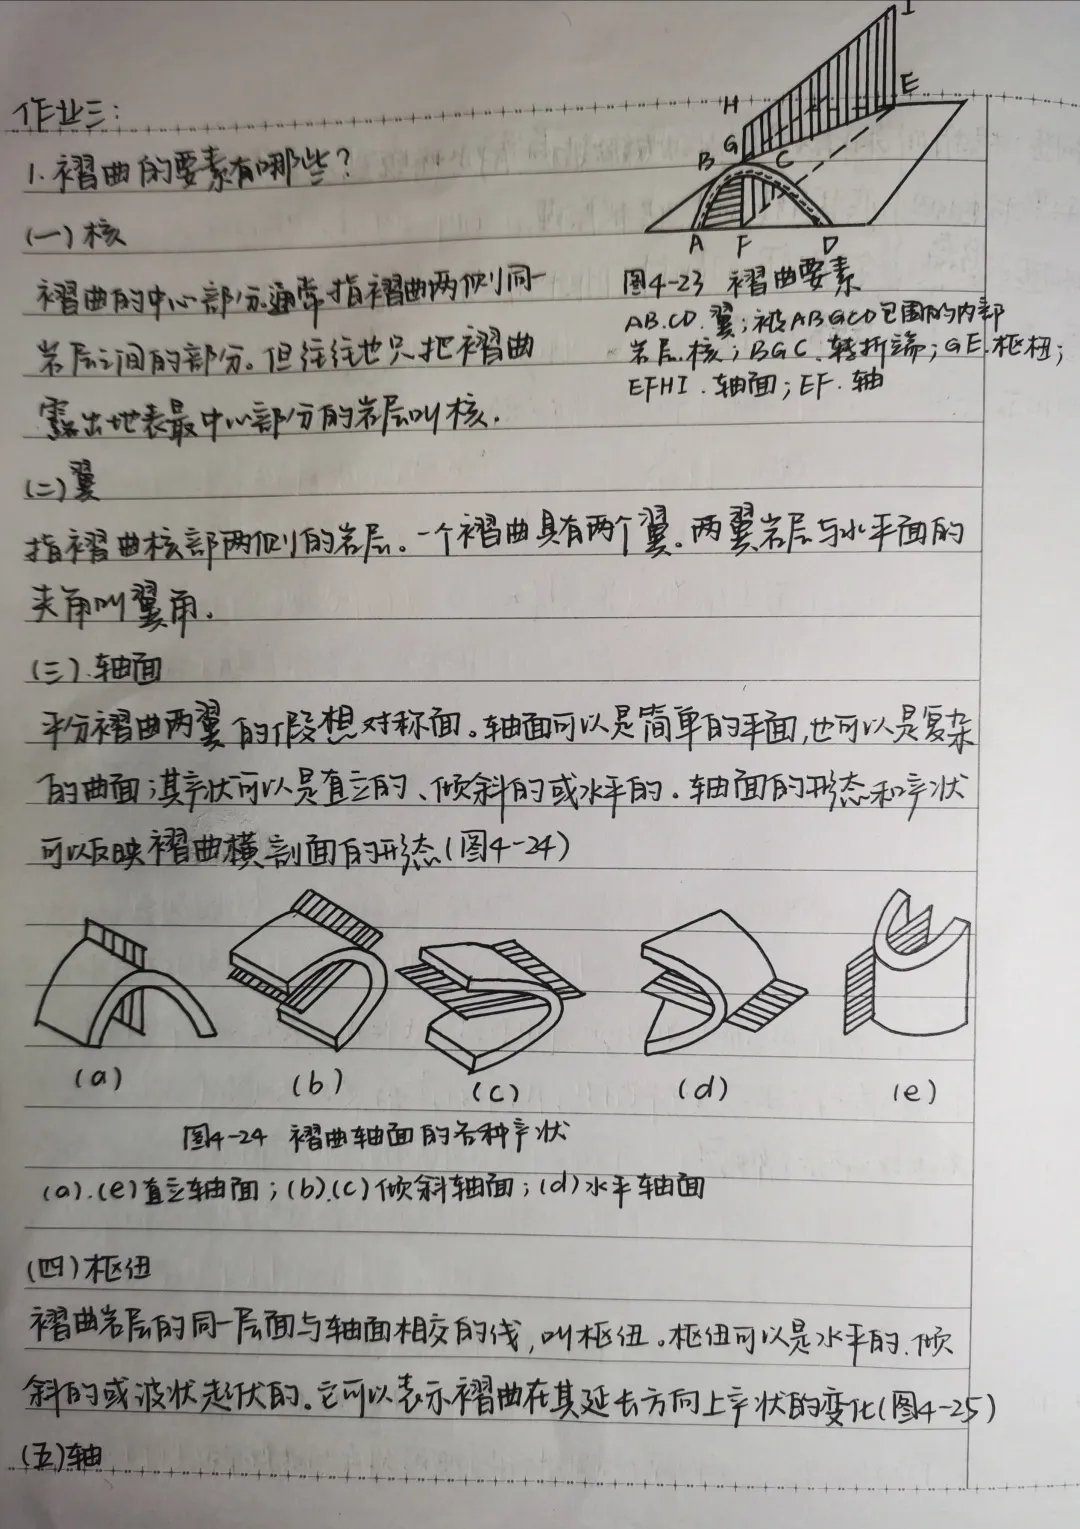 作业三:
1.褶曲的要素有哪些?
(一)核
褶曲的中心部分.通常指褶曲两侧同一
岩层之间的部分。但往往也只把褶曲
露出地表最中心部分的岩层叫核.
H
I
E
G
B
C
A
F
D
图4-23 褶曲要素
AB.CD.翼;被ABGCD包围的内部
岩层.核;BGC.转折端;GE.枢杻;
EFHI.轴面;EF.轴
(二)翼
指褶曲核部两侧的岩层。一个褶曲具有两个翼。两翼岩层与水平面的
夹角叫翼角.
(三).轴面
平分褶曲两翼的假想对称面。轴面可以是简单的平面,也可以是复杂
的曲面;其产状可以是直立的、倾斜的或水平的.轴面的形态和产状
可以反映褶曲横剖面的形态(图4-24)
(a)
(b)
(c)
(d)
(e)
图4-24 褶曲轴面的各种产状
(a).(e)直立轴面;(b).(c)倾斜轴面;(d)水平轴面
(四)枢纽
褶曲岩层的同一层面与轴面相交的线,叫枢纽。枢纽可以是水平的.倾
斜的或波状起伏的。它可以表示褶曲在其延长方向上产状的变化(图4-25)
(五)轴